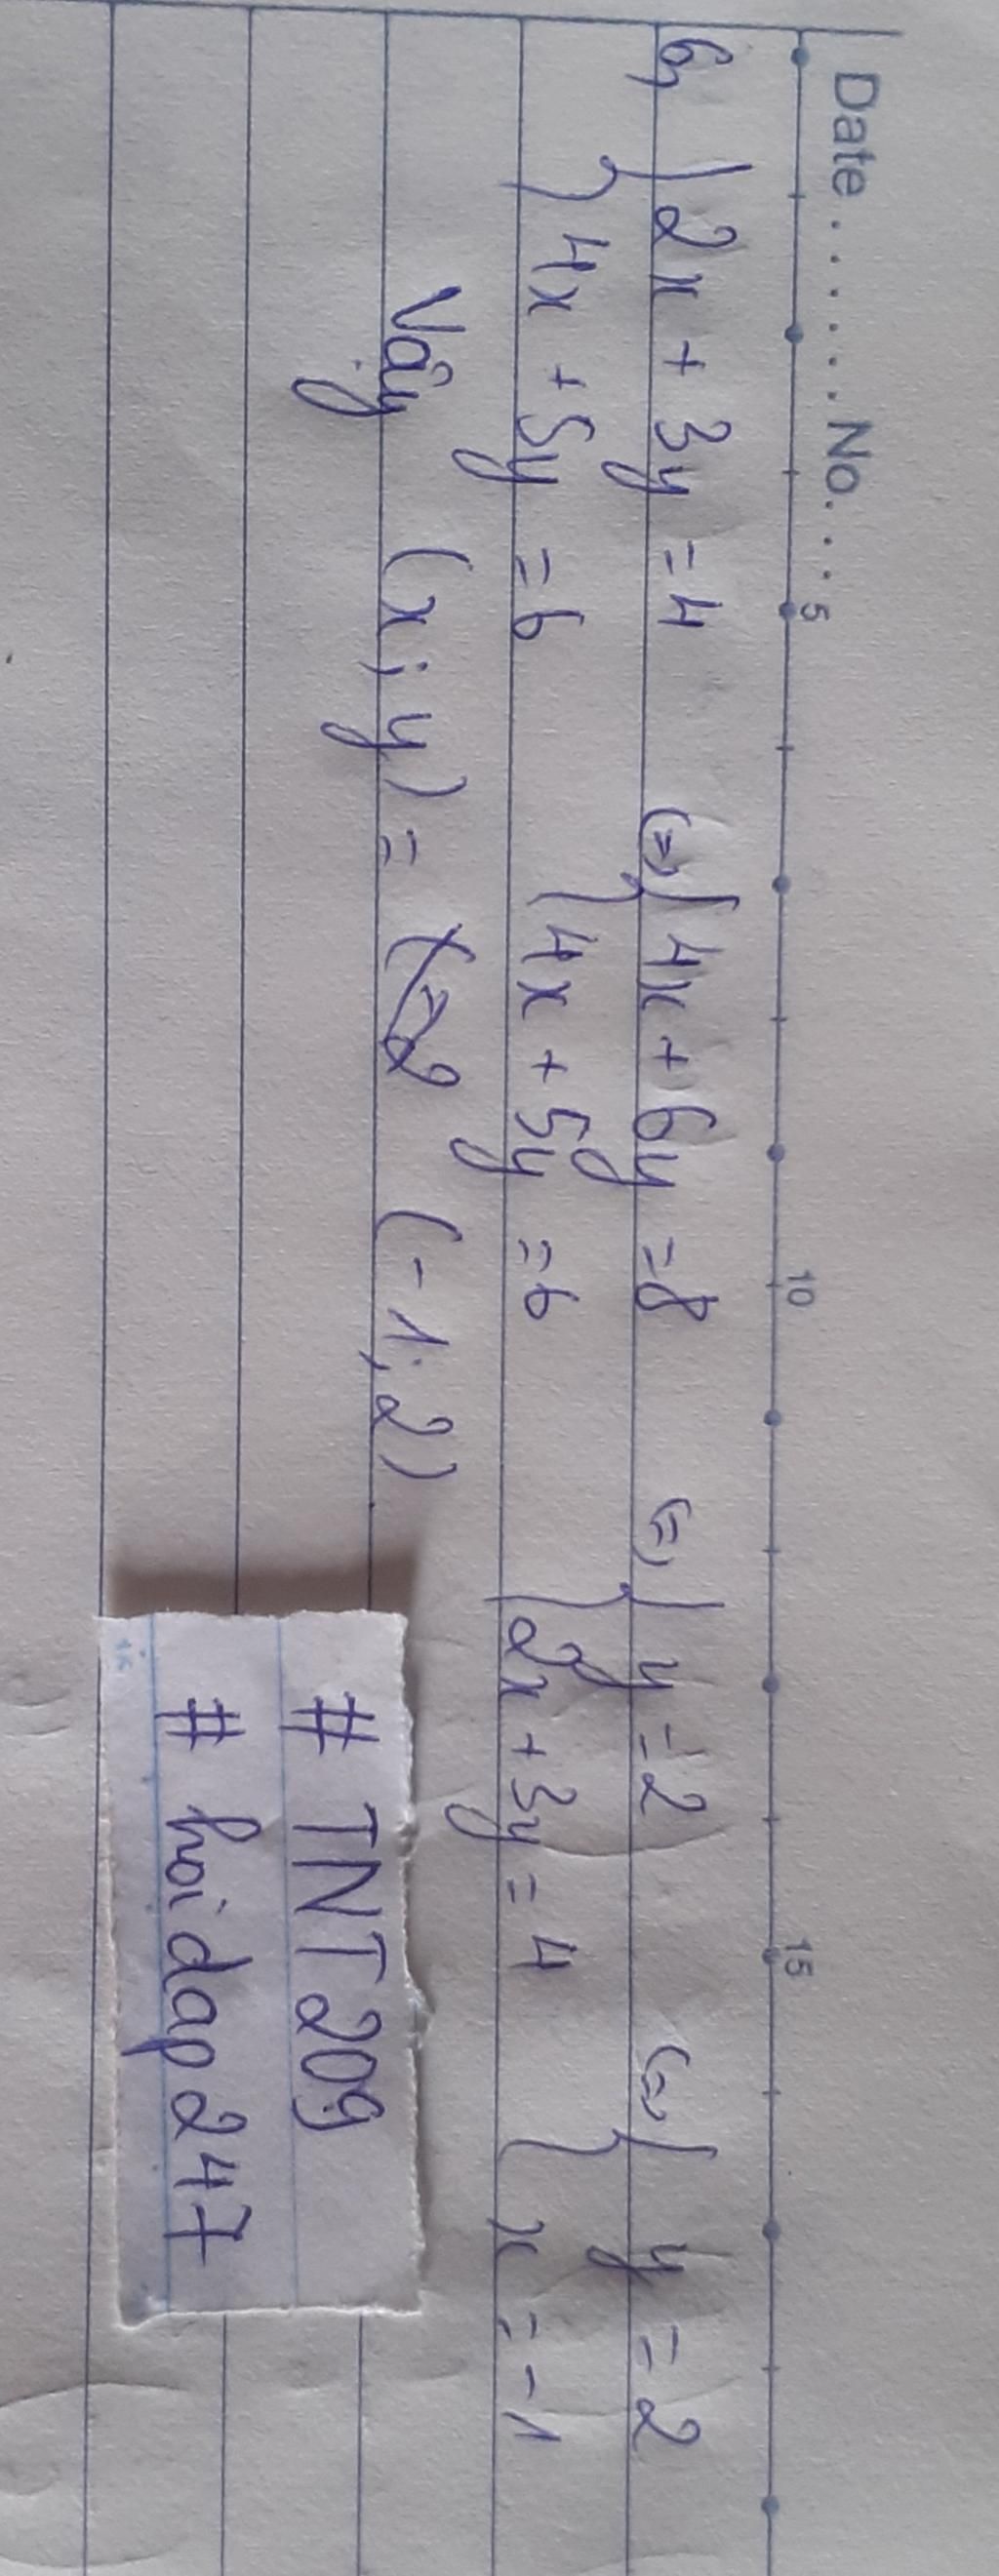 Date ...... No. ....
5 10 15
6, { 2x + 3y = 4 (=) { 4x + 6y = 8 (=) { y = 2 (=) { y = 2
{ 4x + 5y = 6 { 4x + 5y = 6 { 2x + 3y = 4 { x = -1
Vậy (x; y) = (-1; 2)
# TNT209
# hoidap247